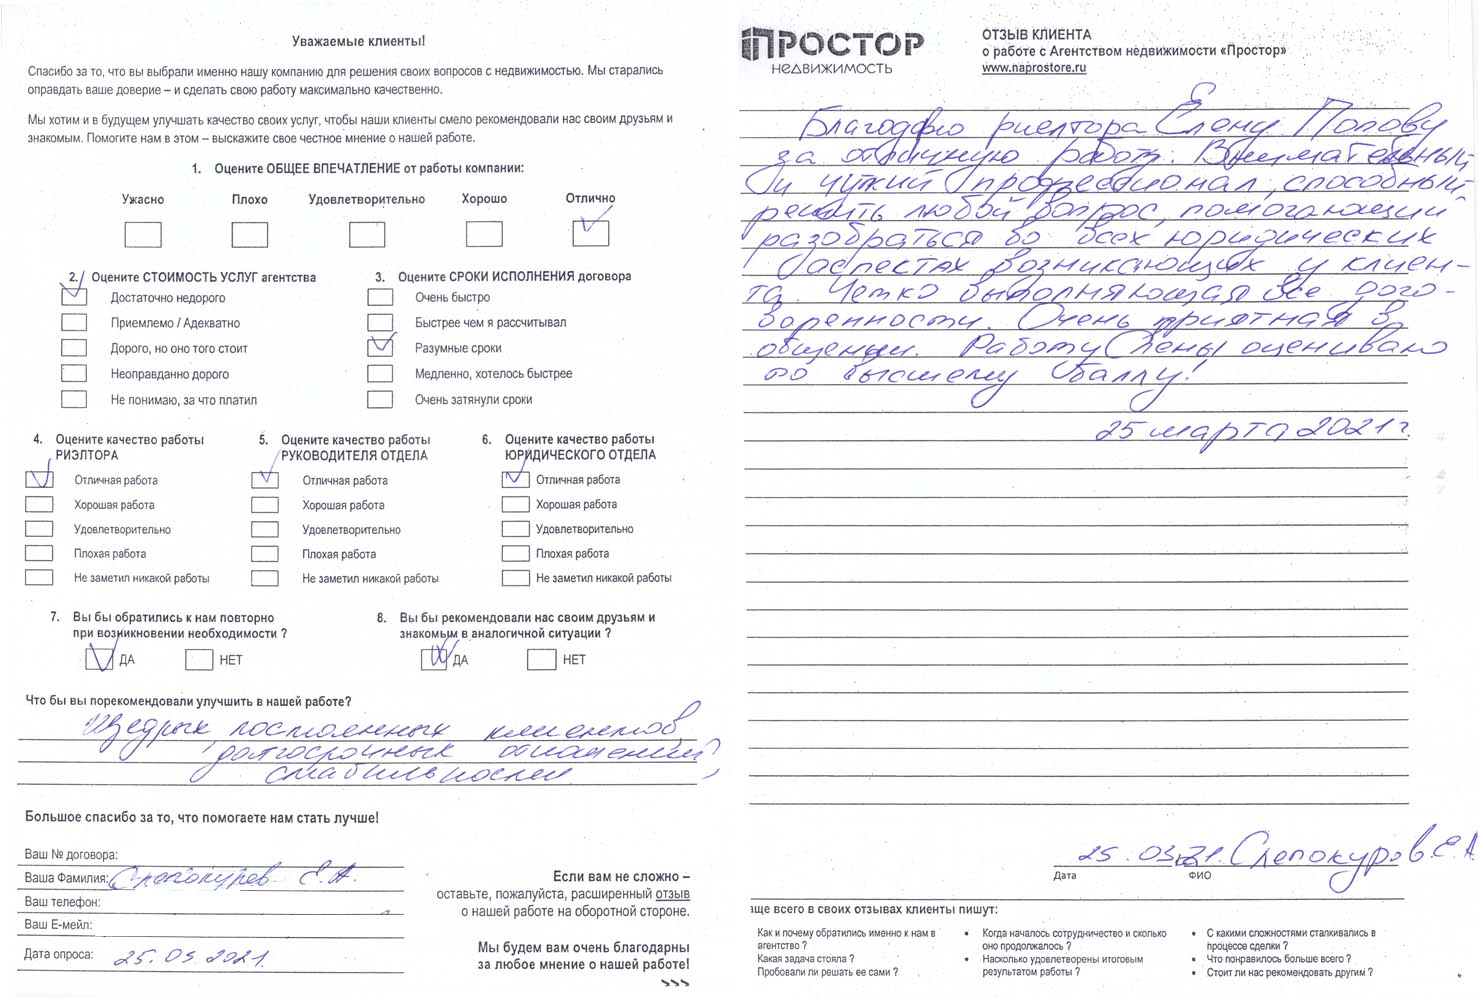 Уважаемые клиенты!
Спасибо за то, что вы выбрали именно нашу компанию для решения своих вопросов с недвижимостью. Мы старались
оправдать ваше доверие – и сделать свою работу максимально качественно.
Мы хотим и в будущем улучшать качество своих услуг, чтобы наши клиенты смело рекомендовали нас своим друзьям и
знакомым. Помогите нам в этом – выскажите свое честное мнение о нашей работе.
1. Оцените ОБЩЕЕ ВПЕЧАТЛЕНИЕ от работы компании:
Ужасно Плохо Удовлетворительно Хорошо Отлично
2. Оцените СТОИМОСТЬ УСЛУГ агентства
Достаточно недорого
Приемлемо / Адекватно
Дорого, но оно того стоит
Неоправданно дорого
Не понимаю, за что платил
3. Оцените СРОКИ ИСПОЛНЕНИЯ договора
Очень быстро
Быстрее чем я рассчитывал
Разумные сроки
Медленно, хотелось быстрее
Очень затянули сроки
4. Оцените качество работы
РИЭЛТОРА
Отличная работа
Хорошая работа
Удовлетворительно
Плохая работа
Не заметил никакой работы
5. Оцените качество работы
РУКОВОДИТЕЛЯ ОТДЕЛА
Отличная работа
Хорошая работа
Удовлетворительно
Плохая работа
Не заметил никакой работы
6. Оцените качество работы
ЮРИДИЧЕСКОГО ОТДЕЛА
Отличная работа
Хорошая работа
Удовлетворительно
Плохая работа
Не заметил никакой работы
7. Вы бы обратились к нам повторно
при возникновении необходимости ?
ДА НЕТ
8. Вы бы рекомендовали нас своим друзьям и
знакомым в аналогичной ситуации ?
ДА НЕТ
Что бы вы порекомендовали улучшить в нашей работе?
Щедрых постоянных клиентов,
долгосрочных отношений,
стабильности
Большое спасибо за то, что помогаете нам стать лучше!
Ваш № договора:
Ваша Фамилия: Слепокуров Е.А.
Ваш телефон:
Ваш Е-мейл:
Дата опроса: 25.03.2021.
Если вам не сложно –
оставьте, пожалуйста, расширенный отзыв
о нашей работе на оборотной стороне.
Мы будем вам очень благодарны
за любое мнение о нашей работе!
>>>
ПРОСТОР
НЕДВИЖИМОСТЬ
ОТЗЫВ КЛИЕНТА
о работе с Агентством недвижимости «Простор»
www.naprostore.ru
Благодарю риелтора Елену Попову
за отличную работу. Внимательный
и чуткий профессионал, способный
решить любой вопрос, помогающий
разобраться во всех юридических
аспектах возникающих у клиен-
та. Четко выполняющая все дого-
воренности. Очень приятная в
общении. Работу Елены оцениваю
по высшему баллу!
25 марта 2021 г.
25.03.21. Слепокуров Е.А.
Дата ФИО
аще всего в своих отзывах клиенты пишут:
Как и почему обратились именно к нам в
агентство ?
Какая задача стояла ?
Пробовали ли решать ее сами ?
• Когда началось сотрудничество и сколько
оно продолжалось ?
• Насколько удовлетворены итоговым
результатом работы ?
• С какими сложностями сталкивались в
процессе сделки ?
• Что понравилось больше всего ?
• Стоит ли нас рекомендовать другим ?